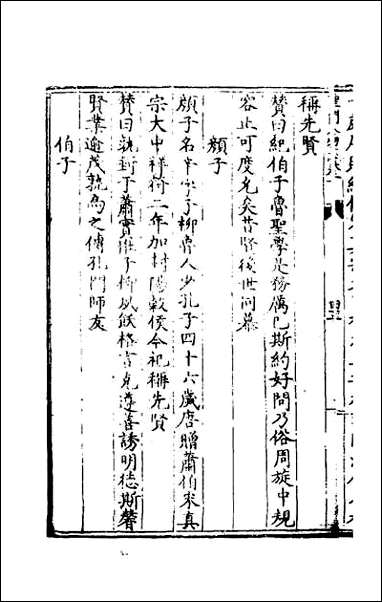 稱先賢
贊曰紀伯子魯聖學是務厲巳斯約好問乃俗周旋中規
容止可度允矣昔賢後世同慕
顏子
顏子名辛字子柳魯人少孔子四十六歲唐贈蕭伯宋真
宗大中祥符二年加封陽穀侯今祀稱先賢
贊曰封于蕭實惟子柳夙飫格言克遵善誘明徳斯馨
賢業逾茂孰為之傅孔門師友
伯子